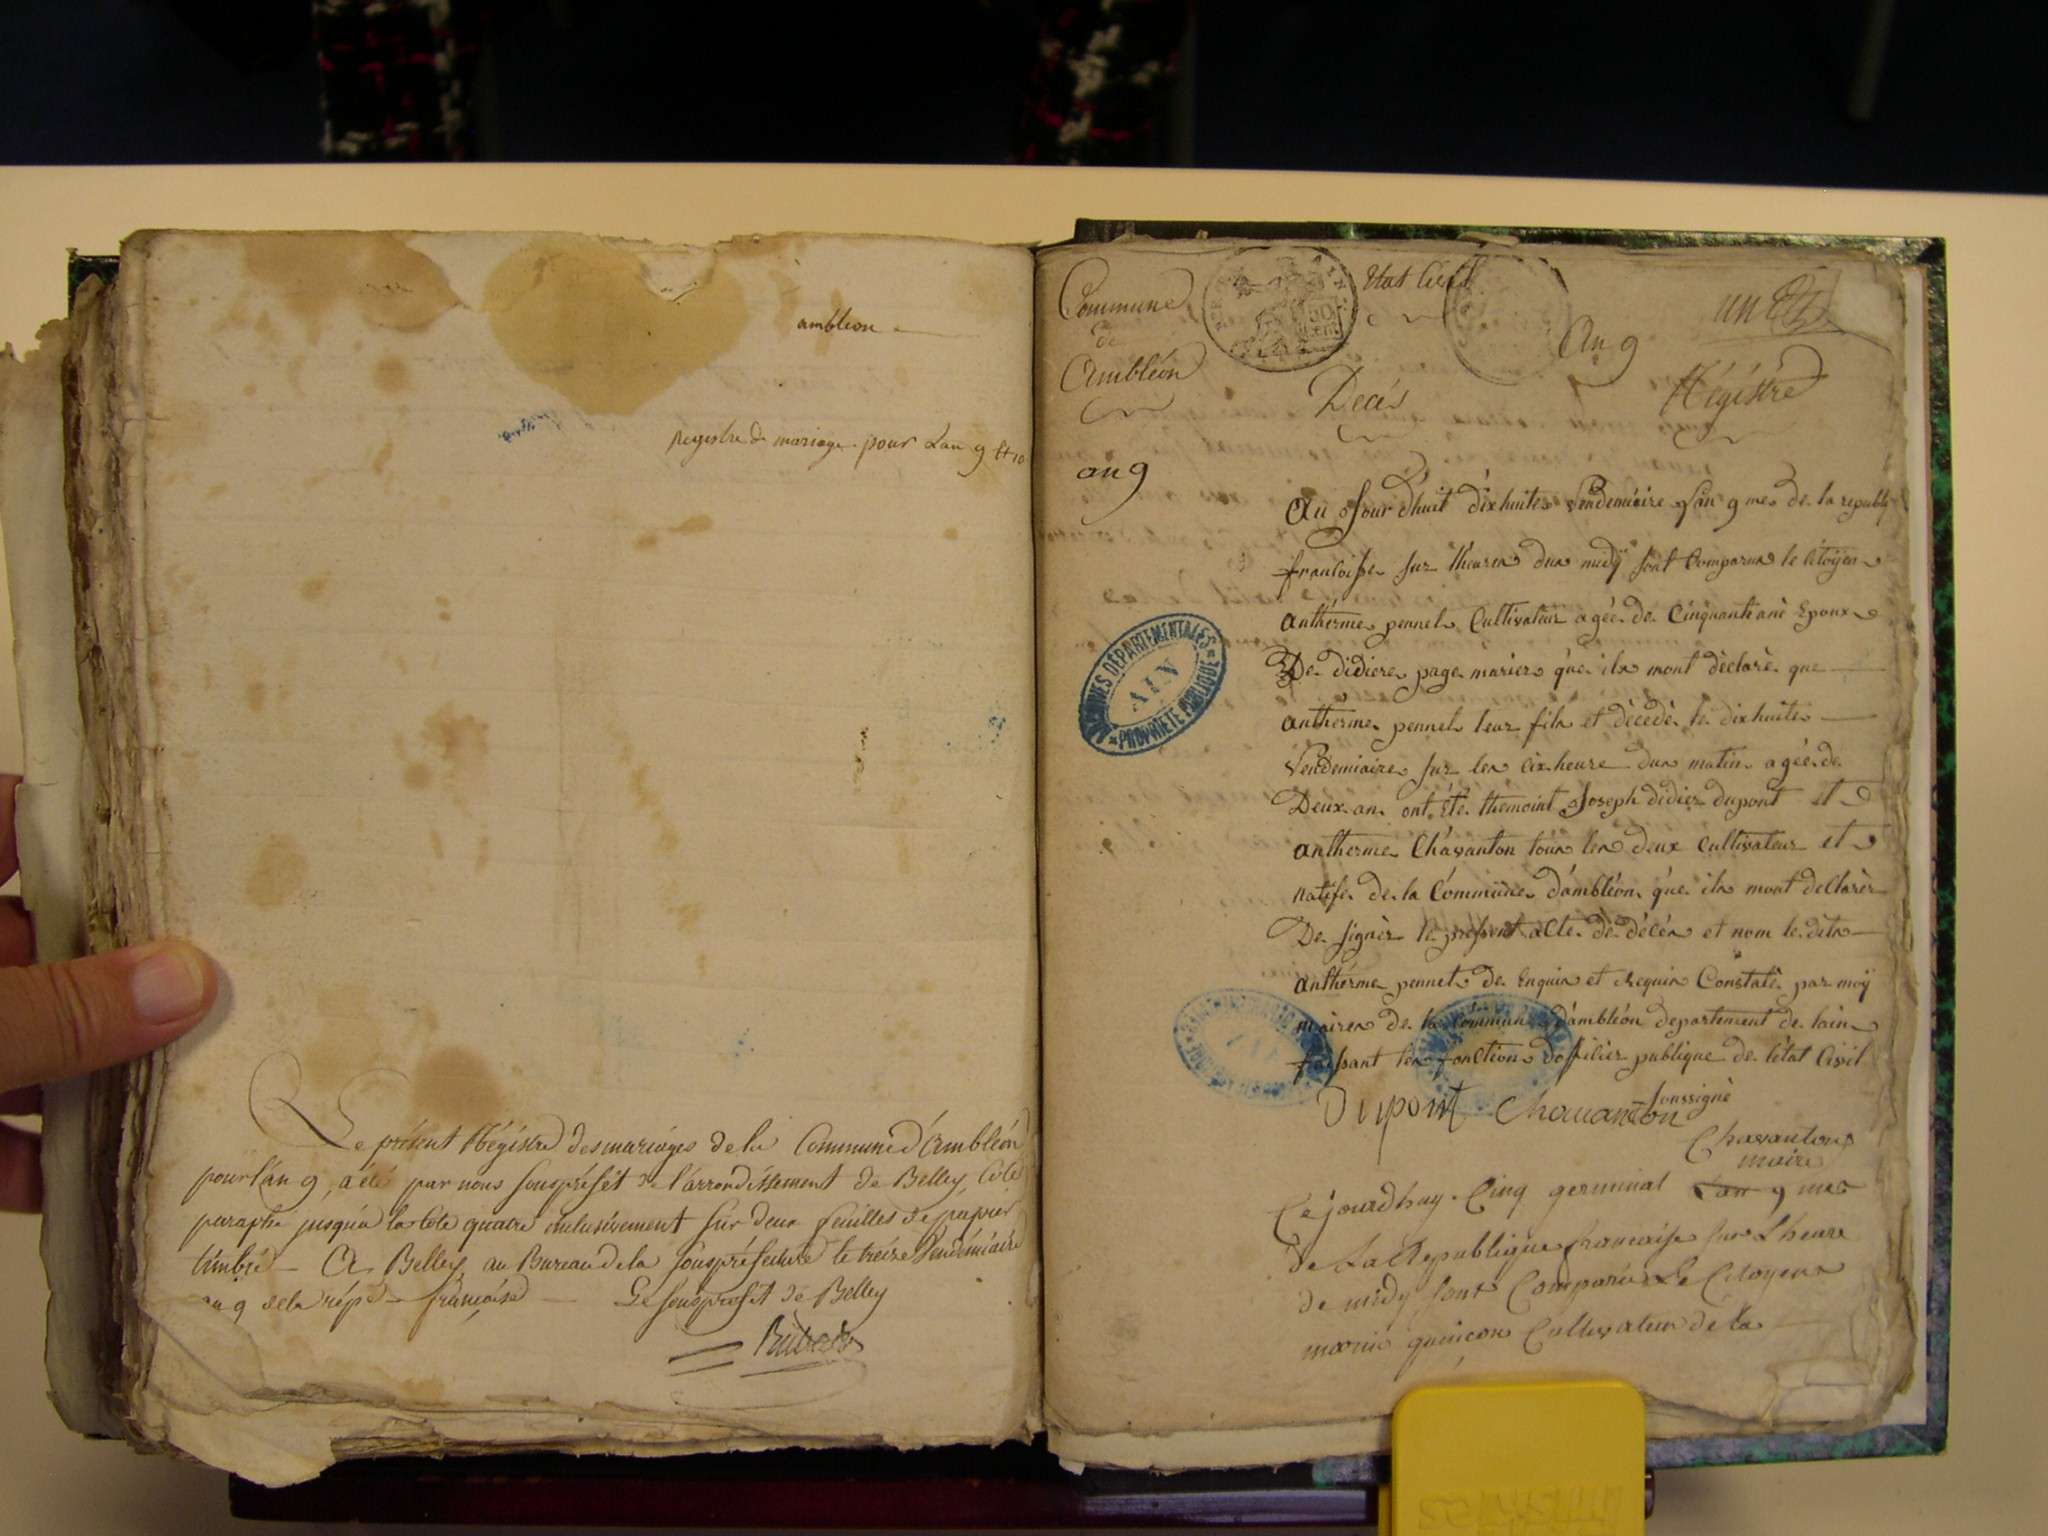 ambleon
registre de mariage pour Lan 9 et 10
Le présent Régistre des mariages de la Commune d'Ambléon
pour l'an 9, a été par nous souspréfêt de l'arrondissement de Belley, Coté
paraphé jusqu'à la Cote quatre inclusivement sur deux feuilles de papier
timbré - A Belley, au Bureau de la souspréfecture le treize Vendémiaire
an 9 de la rép française
Le souspréfet de Belley
Commune
de
Ambléon
Etat Civil
An 9
un
Décès
Régistre
an 9
Au Jour d'huit dixhuite Vendemiaire L'an 9 me de la republ
francoisse sur Lheures dux midÿ sont Comparus le Citoÿen
anthèrme pennet Cultivateur agée de Cinquante ané Epoux
De didiere page marier que ils mont dèclarè que
antherme pennet leur fils et dècedè le dixhuite
Vendemiaire sur les cix heure dux matin agée de
Deux an ont Été themoint Joseph didier dupont et
antherme Chavanton tous les deux Cultivateur et
natife de la Commune d'ambléon que ils mont dèClarèr
De signèr le prèssent aCte de dècés et nom le dits
anthèrme pennet de Enquis et Requis Constatè par moÿ
maire de la Commune d'ambléon departement de lain
faissant les fonCtion dofficier publique de létat Civil
soussignè
Dupont Chavanton
Chavanton
maire
Cejourdhuy Cinq germinal L'an 9 me
de La Republique francaise sur L'heure
de midy sont Comparus Le Citoyens
marin quinson Cultivateur de la
ARCHIVES DÉPARTEMENTALES
AIN
PROPRIÉTÉ PUBLIQUE